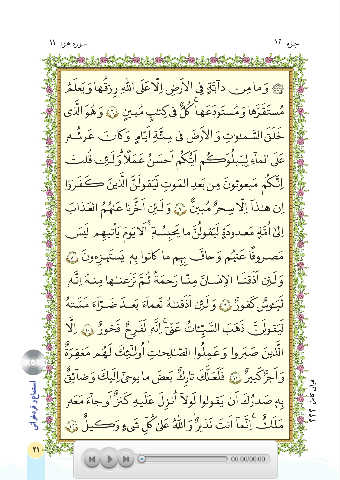 جزء ١٢
سوره هود ١١
وَمَا مِن دَآبَّةٍ فِي الأَرْضِ إِلَّا عَلَى اللَّهِ رِزْقُهَا وَيَعْلَمُ
مُسْتَقَرَّهَا وَمُسْتَوْدَعَهَا كُلٌّ فِي كِتَابٍ مُبِينٍ ﴿٦﴾ وَهُوَ الَّذِي
خَلَقَ السَّمَاوَاتِ وَالأَرْضَ فِي سِتَّةِ أَيَّامٍ وَكَانَ عَرْشُهُ
عَلَى الْمَاءِ لِيَبْلُوَكُمْ أَيُّكُمْ أَحْسَنُ عَمَلًا وَلَئِن قُلْتَ
إِنَّكُم مَبْعُوثُونَ مِن بَعْدِ الْمَوْتِ لَيَقُولَنَّ الَّذِينَ كَفَرُوا
إِن هَذَا إِلَّا سِحْرٌ مُبِينٌ ﴿٧﴾ وَلَئِن أَخَّرْنَا عَنْهُمُ الْعَذَابَ
إِلَى أُمَّةٍ مَعْدُودَةٍ لَيَقُولُنَّ مَا يَحْبِسُهُ أَلَا يَوْمَ يَأْتِيهِمْ لَيْسَ
مَصْرُوفًا عَنْهُمْ وَحَاقَ بِهِم مَا كَانُوا بِهِ يَسْتَهْزِءُونَ ﴿٨﴾
وَلَئِن أَذَقْنَا الإِنْسَانَ مِنَّا رَحْمَةً ثُمَّ نَزَعْنَاهَا مِنْهُ إِنَّهُ
لَيَئُوسٌ كَفُورٌ ﴿٩﴾ وَلَئِن أَذَقْنَاهُ نَعْمَاءَ بَعْدَ ضَرَّاءَ مَسَّتْهُ
لَيَقُولَنَّ ذَهَبَ السَّيِّئَاتُ عَنِّي إِنَّهُ لَفَرِحٌ فَخُورٌ ﴿١٠﴾ إِلَّا
الَّذِينَ صَبَرُوا وَعَمِلُوا الصَّالِحَاتِ أُولَئِكَ لَهُم مَغْفِرَةٌ
وَأَجْرٌ كَبِيرٌ ﴿١١﴾ فَلَعَلَّكَ تَارِكٌ بَعْضَ مَا يُوحَى إِلَيْكَ وَضَائِقٌ
بِهِ صَدْرُكَ أَن يَقُولُوا لَوْلَا أُنْزِلَ عَلَيْهِ كَنْزٌ أَوْ جَاءَ مَعَهُ
مَلَكٌ إِنَّمَا أَنتَ نَذِيرٌ وَاللَّهُ عَلَى كُلِّ شَيْءٍ وَكِيلٌ ﴿١٢﴾
استماع و فرمخوانی
قرآن کامل ٢٢٢
٢١
00:00/00:00